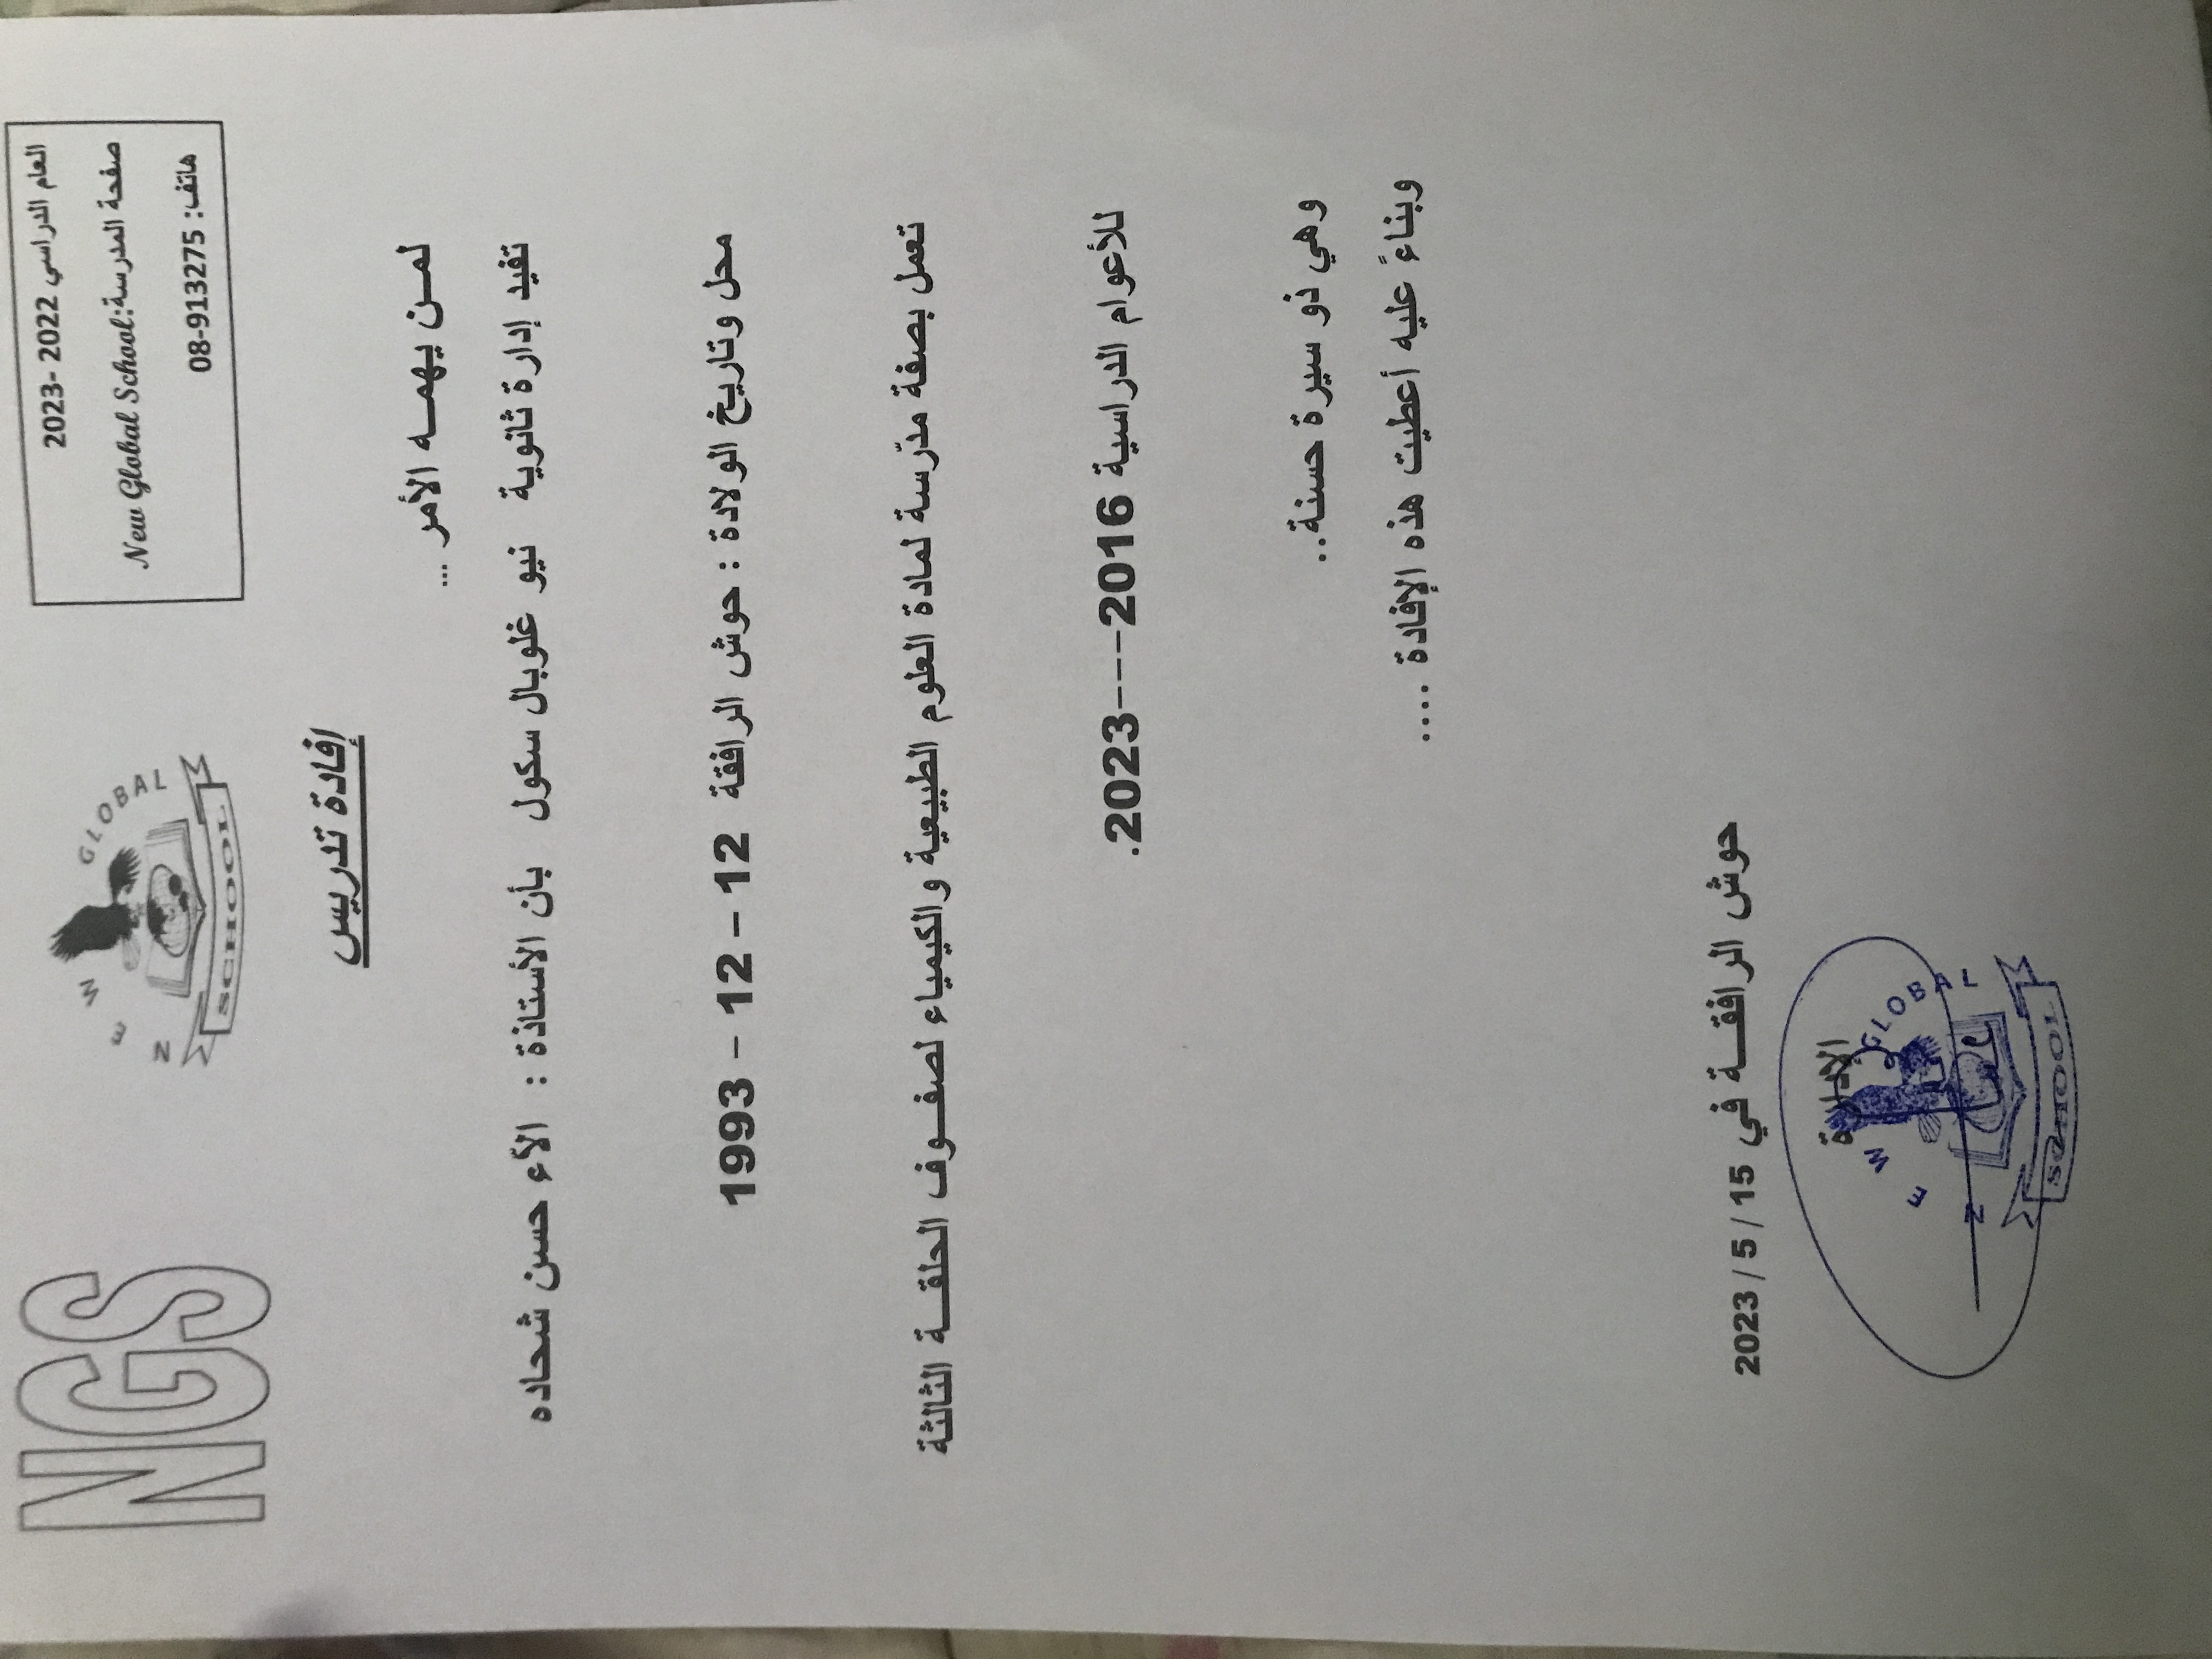 العام الدراسي 2022 -2023
صفحة المدرسة:New Global School
هاتف: 08-913275
NEW GLOBAL
SCHOOL
NGS
إفادة تدريس
لمـن يهمـه الأمر ...
تفيد إدارة ثانوية نيو غلوبال سكول بأن الأستاذة : الآء حسن شحاده
محل وتاريخ الولادة : حوش الرافقة 12 – 12 – 1993
تعمل بصفة مدرّسة لمادة العلوم الطبيعية والكيمياء لصفـوف الحلقـة الثالثة
للأعوام الدراسية 2016---2023.
وهي ذو سيرة حسنة..
وبناءً عليه أعطيت هذه الإفادة ....
حوش الرافقـة في 15 / 5 / 2023
الإدارة
NEW GLOBAL
SCHOOL